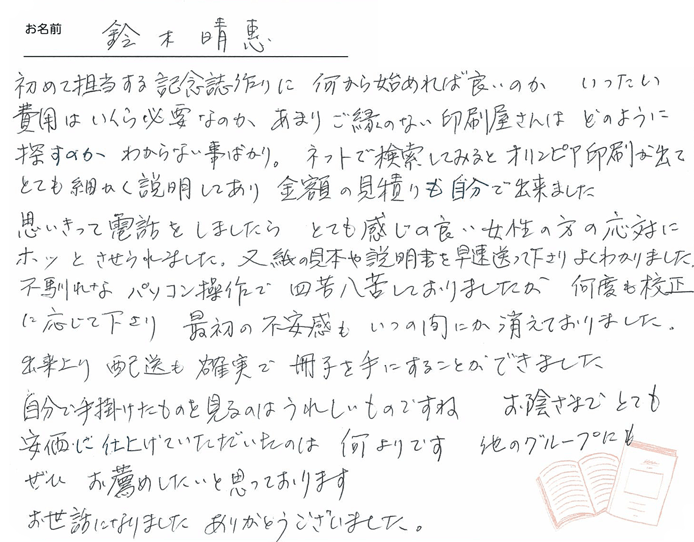 お名前 鈴木晴恵
初めて担当する記念誌作りに 何から始めれば良いのか いったい
費用はいくら必要なのか、あまりご縁のない印刷屋さんは どのように
探すのか わからない事ばかり。 ネットで検索してみるとオリンピア印刷が出て
とても細かく説明してあり 金額の見積りも自分で出来ました
思いきって電話をしましたら とても感じの良い女性の方の応対に
ホッとさせられました。又紙の見本や説明書を早速送って下さりよくわかりました。
不馴れな パソコン操作で 四苦八苦しておりましたが 何度も校正
に応じて下さり 最初の不安感も いつの間にか消えておりました。
出来上り 配送も確実で 冊子を手にすることができました
自分で手掛けたものを見るのはうれしいものですね お陰さまでとても
安価に仕上げていただいたのは 何よりです 他のグループにも
ぜひ お薦めしたいと思っております
お世話になりました ありがとうございました。